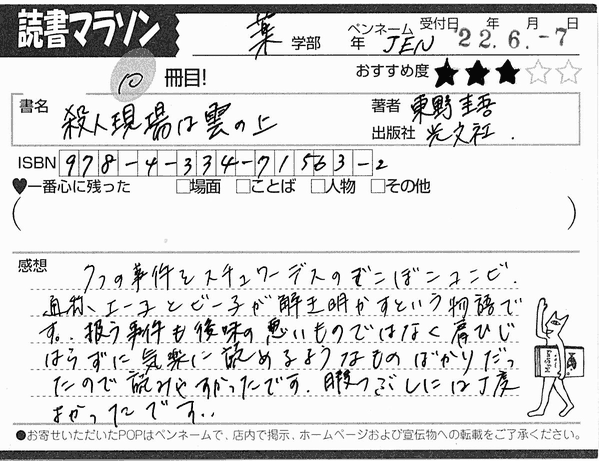 読書マラソン
薬 学部 年 ペンネーム JEN 受付日 年 月 日 22.6.-7
10 冊目! おすすめ度 ★★★☆☆
書名 殺人現場は雲の上 著者 東野圭吾
出版社 光文社.
ISBN 978-4-334-71563-2
♥一番心に残った □場面 □ことば □人物 □その他
( )
感想
7つの事件をスチュワーデスのでこぼこコンビ.
通称、エー子とビー子が解き明かすという物語で
す。扱う事件も後味の悪いものではなく肩ひじ
はらずに気楽に読めるようなものばかりだっ
たので読みやすかったです. 暇つぶしには丁度
よかったです..
●お寄せいただいたPOPはペンネームで、店内で掲示、ホームページおよび宣伝物への転載をご了承ください。